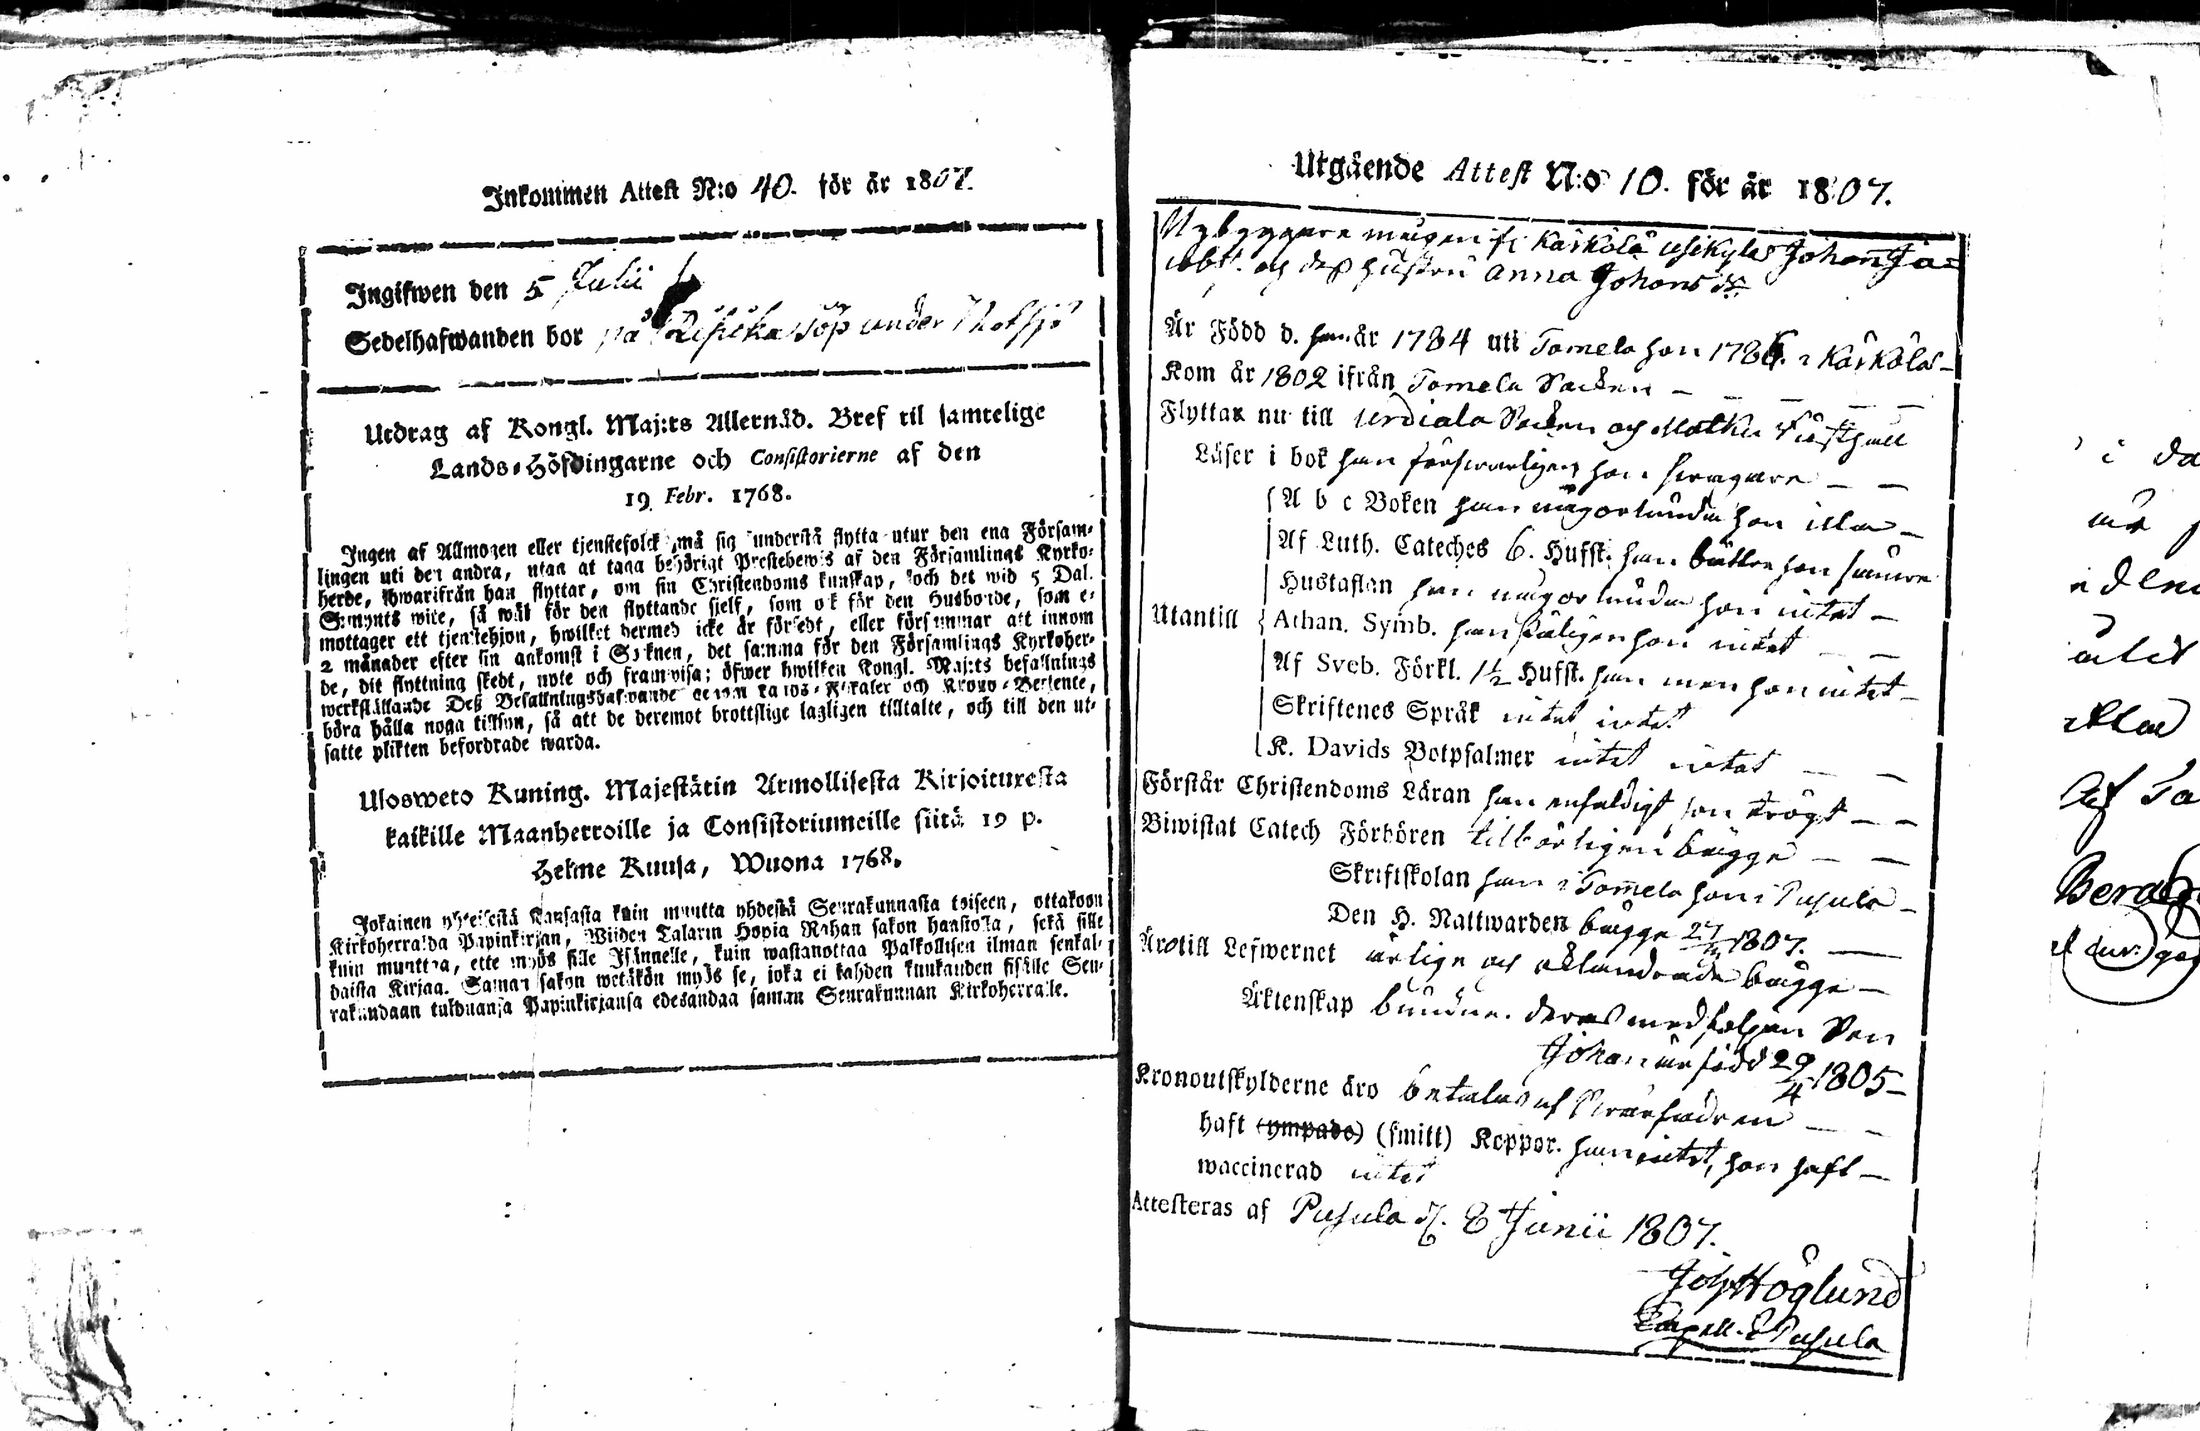 Inkommen Attest N:o 40. för år 1807.
Ingifwen den 5 Julii
Sedelhafwanden bor på under
Utdrag af Kongl. Maj:ts Allernåd. Bref til samtelige
Lands-Höfdingarne och Consistorierne af den
19 Febr. 1768.
Ingen af Allmogen eller tjenstefolck må sig understå flytta utur den ena Försam-
lingen uti den andra, utan at taga behörigt Prestebewis af den Församlings Kyrko-
herde, hwarifrån han flyttar, om sin Christendoms kunskap, och det wid 5 Dal.
S:mynts wite, så wäl för den flyttande sjelf, som ock för den Husbonde, som e-
mottager ett tjenstehjon, hwilket dermed icke är försedt, eller försummar att innom
2 månader efter sin ankomst i Socknen, det samma för den Församlings Kyrkoher-
de, dit flyttning skedt, upte och framwisa; öfwer hwilken Kongl. Maj:ts befallnings
werkställande Deß Befallningshafwande genom Lands-Fiskaler och Krono-Betjente,
böra hålla noga tillsyn, så att de deremot brottslige lagligen tilltalte, och till den ut-
satte plikten befordrade warda.
Ulosweto Kuning. Majestätin Armollisesta Kirjoituxesta
kaikille Maanherroille ja Consistoriumeille siitä 19 p.
Helme Kuusa, Wuona 1768.
Jokainen yhteisestä Kansasta kuin muutta yhdestä Seurakunnasta toiseen, ottakoon
Kirkoherralda Papinkirjan, Wiiden Talarin Hopia Rahan sakon haastolla, sekä sille
kuin muuttaa, ette myös sille Isännelle, kuin wastanottaa Palkollisen ilman senkal-
daista Kirjaa. Saman sakon wetäkön myös se, joka ei kahden kuukauden sisälle Seu-
rakundaan tulduansa Papinkirjansa edesandaa saman Seurakunnan Kirkoherralle.
Utgående Attest N:o 10. för år 1807.
Nybyggare Karkola Johan Ja=
cobs. och deß hustru Anna Johans dr.
Är Född d. han år 1784 uti Tamela hon 1786. i Karkola
Kom år 1802 ifrån Tamela Socken
Flyttar nu till Urdiala Socken och
Läser i bok han försvarligen hon svagare
A b c Boken han någorlunda hon illa
Af Luth. Cateches 6. Hufst. han bättre hon sämre
Hustaflan han någorlunda hon intet
Utantill
Athan. Symb. han hon intet
Af Sveb. Förkl. 1½ Hufst. han men hon intet
Skriftenes Språk intet intet
K. Davids Botpsalmer intet intet
Förstår Christendoms Läran han enfaldigt hon trögt
Biwistat Catech Förhören tilbörligen bägge
Skriftskolan han i Tamela hon i Pusula
Den H. Nattwarden bägge 1807.
Ärotill Lefwernet ärlige och oklandrade bägge
Äktenskap bundne. deras medföljan Son
Johan är född 29/4 1805
Kronoutskylderne äro betalas af Svärfadren
haft (ympade) (smitt) Koppor. han intet, hon haft
waccinerad intet
Attesteras af Pusula d. 8 Junii 1807.
Joh Höglund
Capell. i Pusula